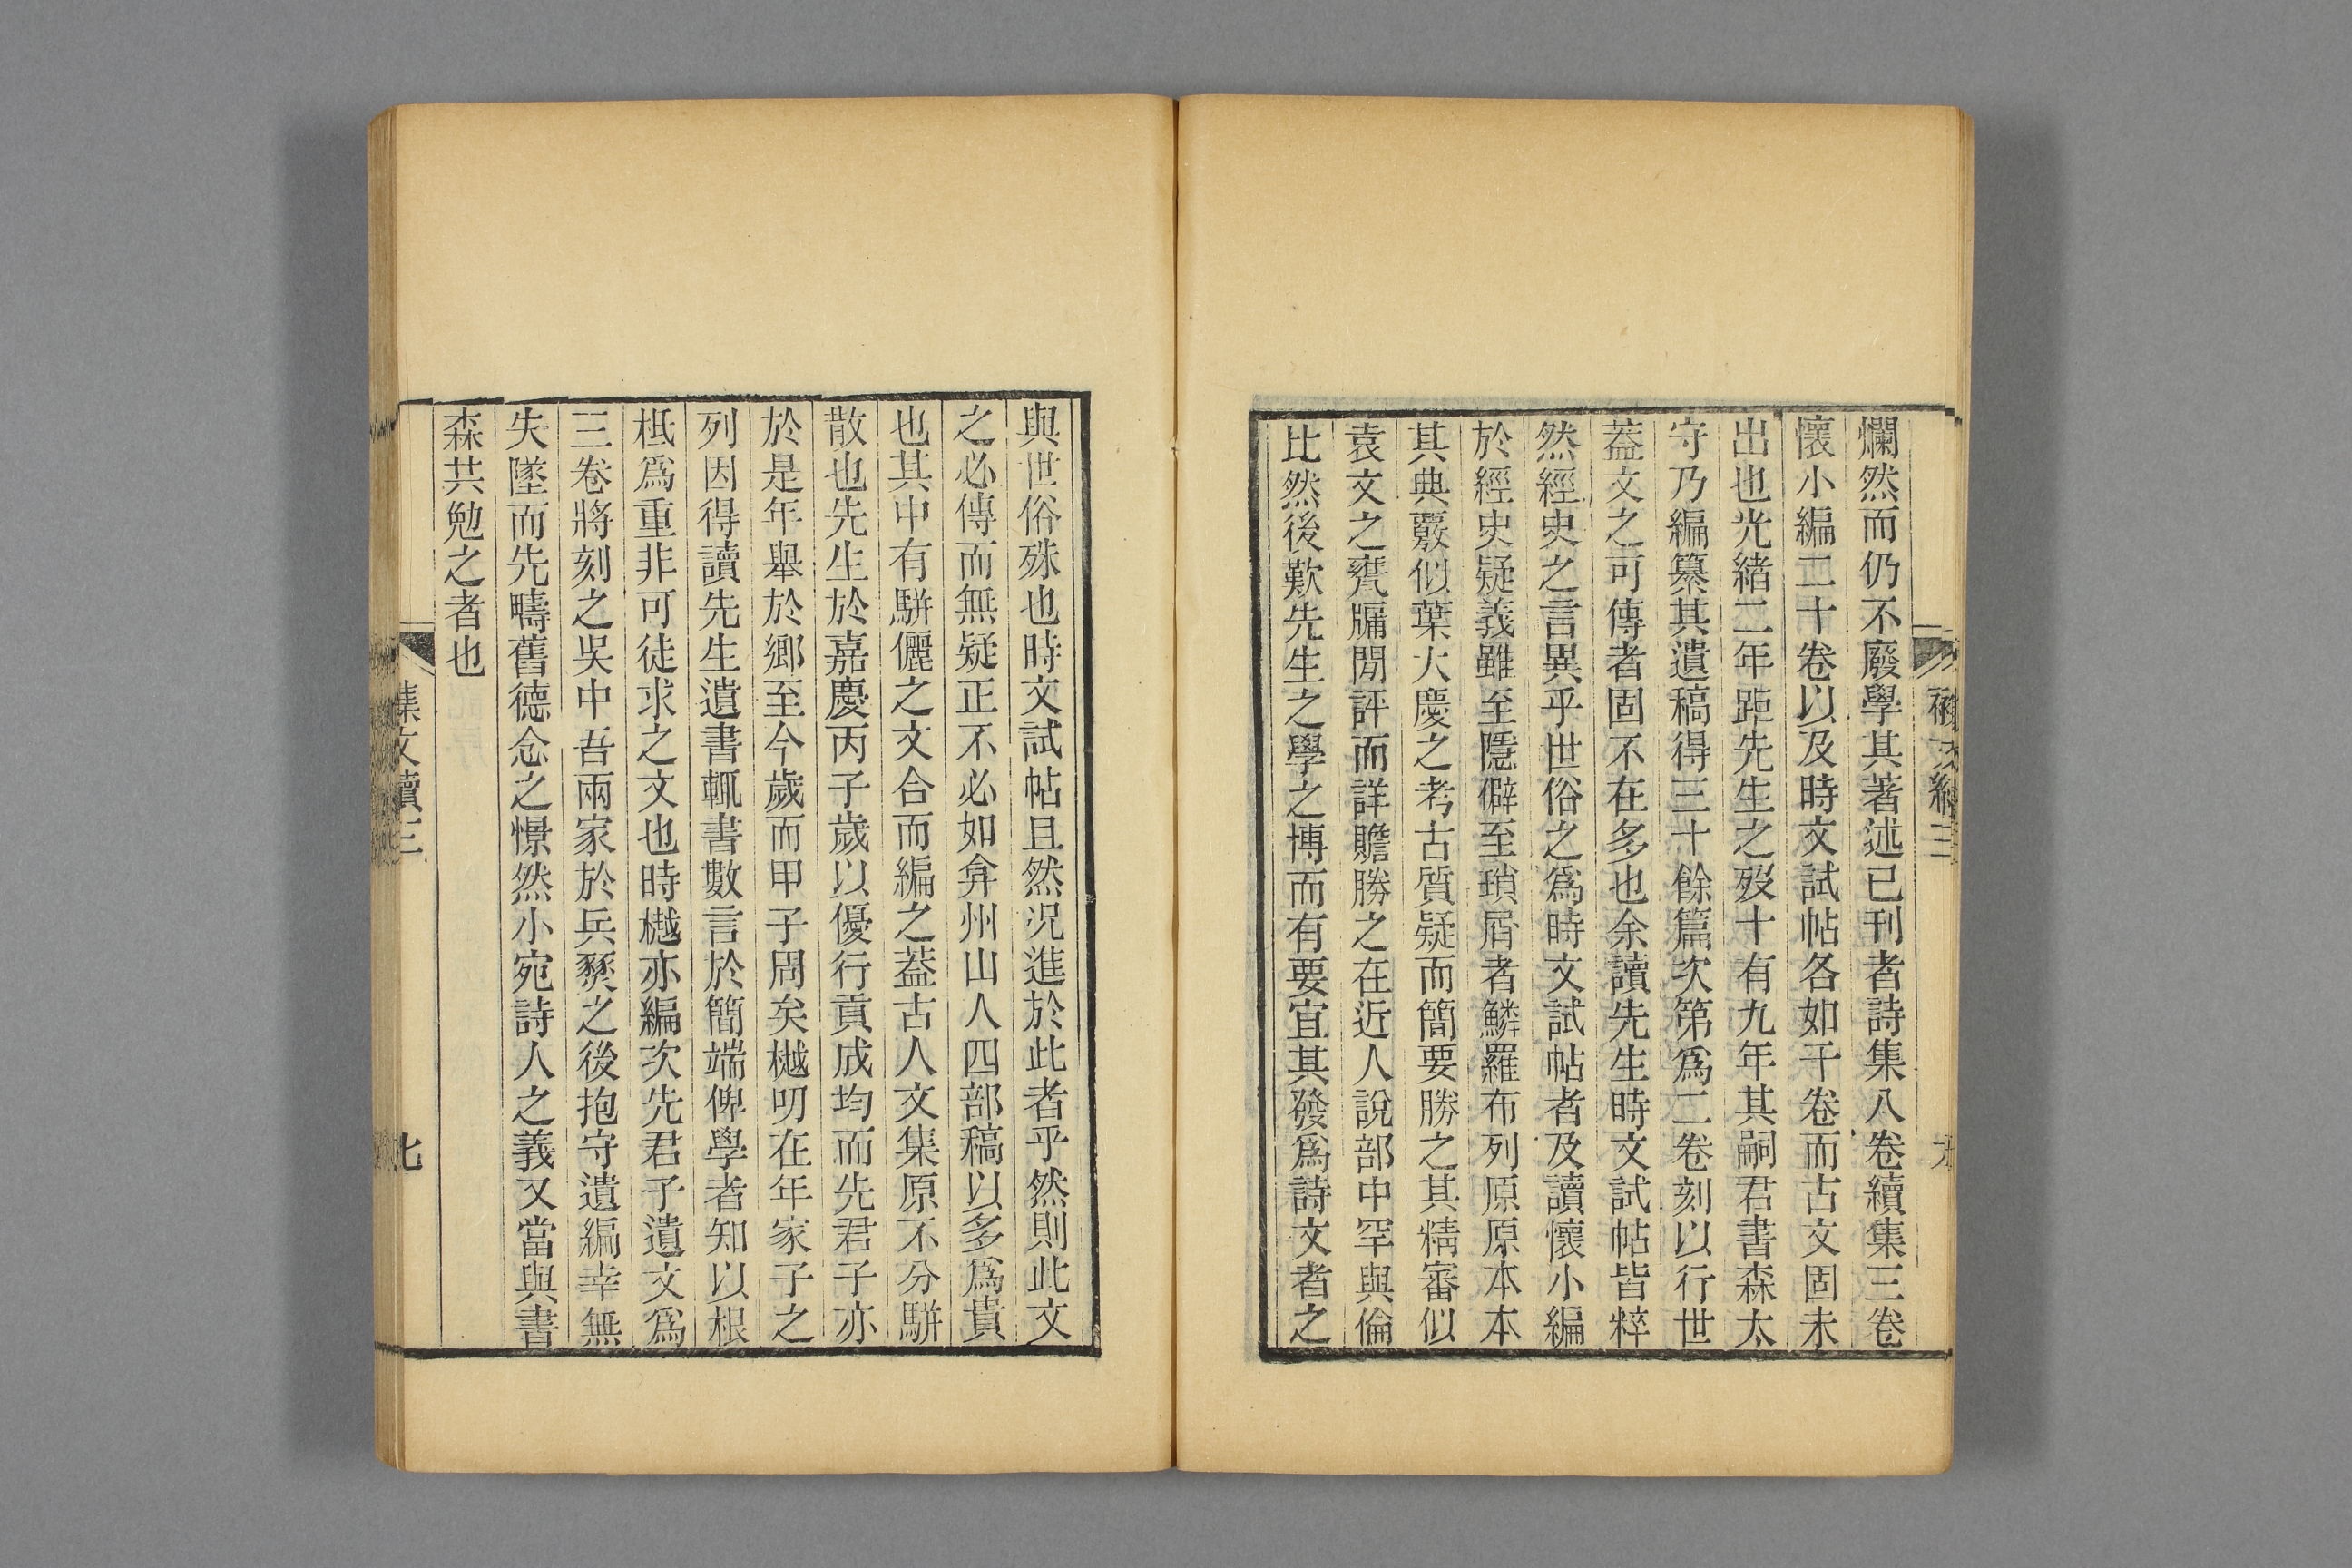 爛然而仍不廢學其著述已刊者詩集八卷續集三卷
懷小編二十卷以及時文試帖各如干卷而古文固未
出也光緒二年距先生之歿十有九年其嗣君書森太
守乃編纂其遺稿得三十餘篇次第爲二卷刻以行世
葢文之可傳者固不在多也余讀先生時文試帖皆粹
然經史之言異乎世俗之爲時文試帖者及讀懷小編
於經史疑義雖至隱僻至瑣屑者鱗羅布列原原本本
其典覈似葉大慶之考古質疑而簡要勝之其精審似
袁文之甕牖閒評而詳贍勝之在近人說部中罕與倫
比然後歎先生之學之博而有要宜其發爲詩文者之
與世俗殊也時文試帖且然况進於此者乎然則此文
之必傳而無疑正不必如弇州山人四部稿以多爲貴
也其中有駢儷之文合而編之葢古人文集原不分駢
散也先生於嘉慶丙子歲以優行貢成均而先君子亦
於是年舉於鄉至今歲而甲子周矣樾叨在年家子之
列因得讀先生遺書輒書數言於簡端俾學者知以根
柢爲重非可徒求之文也時樾亦編次先君子遺文爲
三卷將刻之吳中吾兩家於兵燹之後抱守遺編幸無
失墜而先疇舊德念之憬然小宛詩人之義又當與書
森共勉之者也